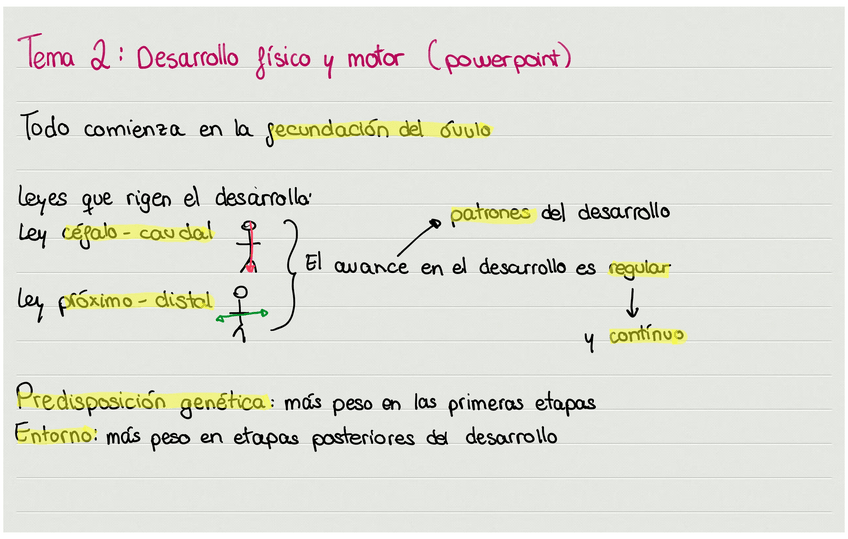 Tema 2: Desarrollo físico y motor (powerpoint)
Todo comienza en la fecundación del óvulo
Leyes que rigen el desarrollo:
Ley céfalo-caudal
Ley próximo-distal
patrones del desarrollo
El avance en el desarrollo es regular
y contínuo
Predisposición genética: más peso en las primeras etapas
Entorno: más peso en etapas posteriores del desarrollo